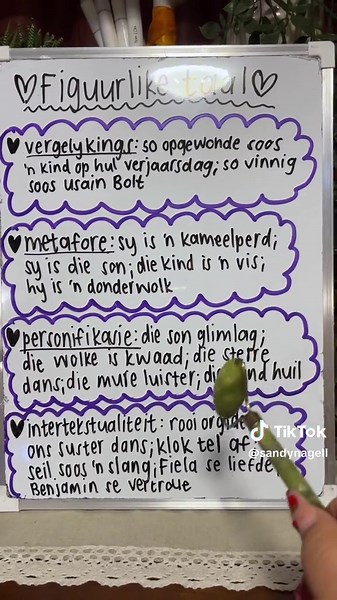 ♡Figuurlike taal♡
♥vergelykings: so opgewonde soos
'n kind op hul verjaarsdag; so vinnig
soos usain Bolt
♥metafore: sy is 'n kameelperd;
sy is die son; die kind is 'n vis;
hy is 'n donderwolk
♥personifikasie: die son glimlag;
die wolke is kwaad; die sterre
dans; die mure luister; die huil
♥intertekstualiteit: rooi
ons suster dans; klok tel af
seil soos 'n slang; Fiela se liefde,
Benjamin se vertroue
TikTok
@sandynagell